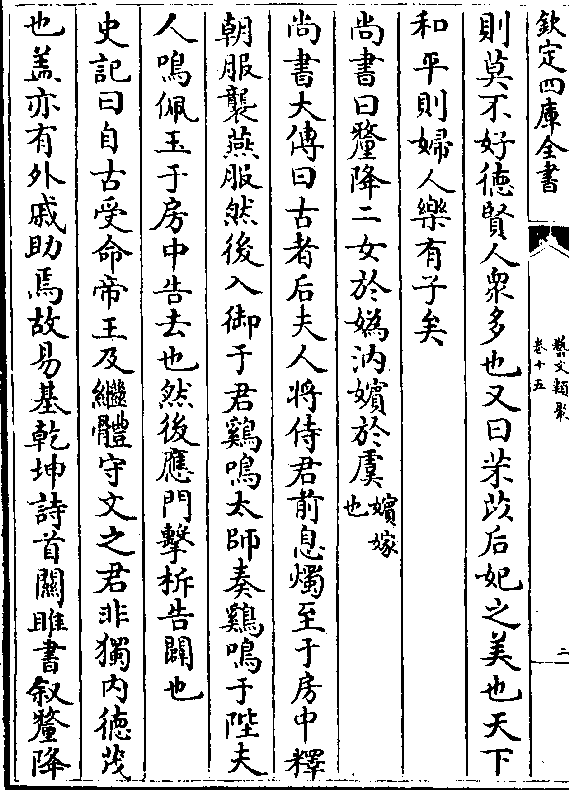 欽定四庫全書
藝文類聚
卷十五
二
則莫不好徳賢人衆多也又曰芣苢后妃之美也天下
和平則婦人樂有子矣
尚書曰釐降二女於媯汭嬪於虞嬪嫁
也
尚書大傳曰古者后夫人將侍君前息燭至于房中釋
朝服襲燕服然後入御于君鷄鳴太師奏鷄鳴于陛夫
人鳴佩玉于房中告去也然後應門擊柝告闢也
史記曰自古受命帝王及繼體守文之君非獨内徳茂
也盖亦有外戚助焉故易基乾坤詩首關雎書叙釐降